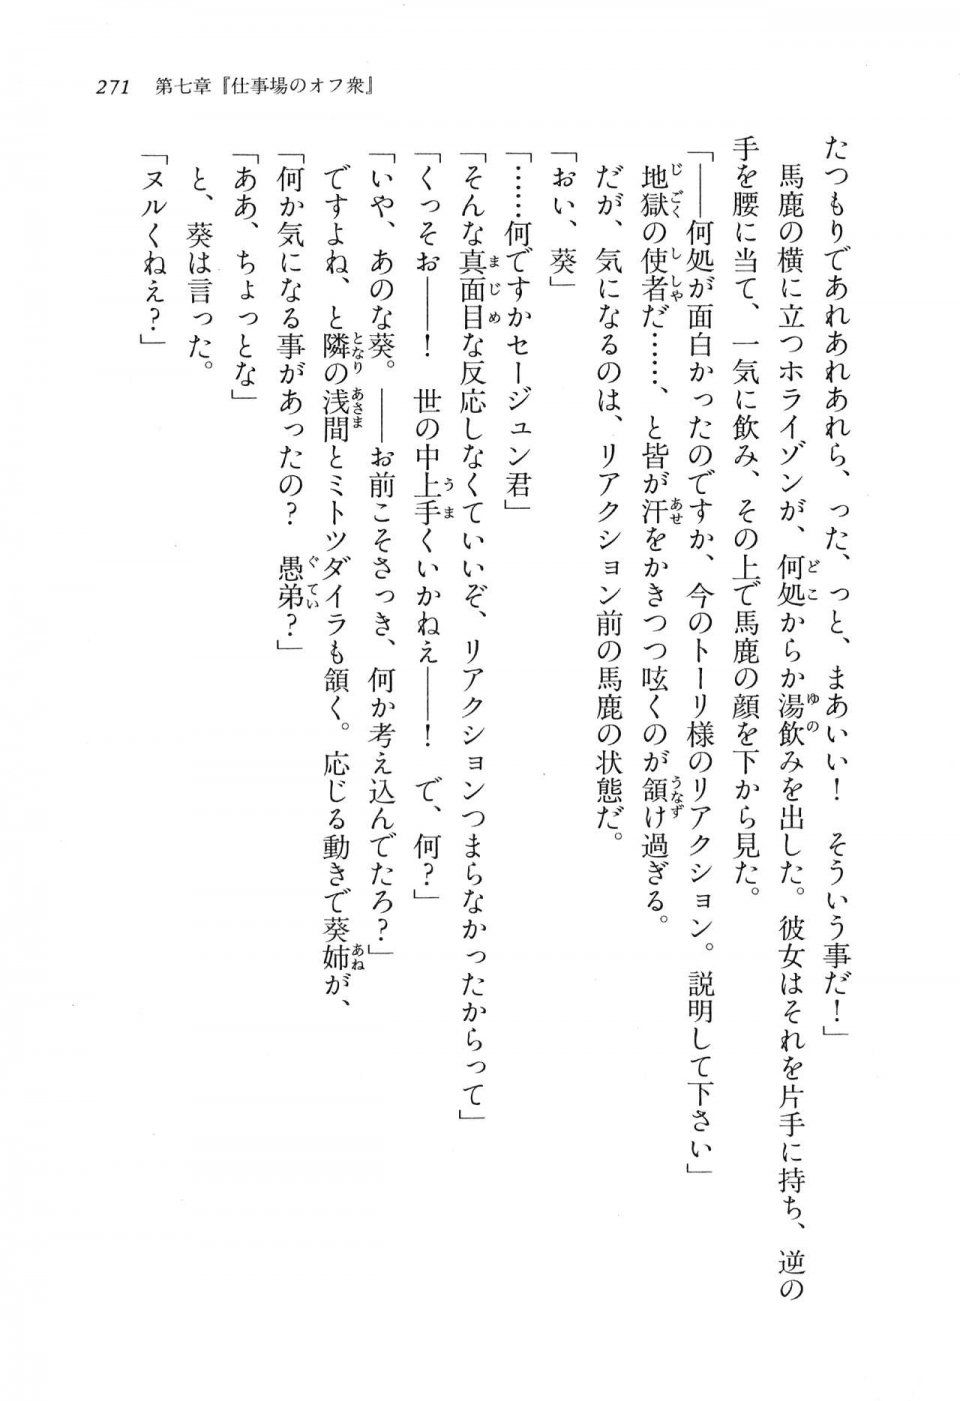 271　第七章『仕事場のオフ衆』
たつもりであれあれあれら、った、っと、まあいい！　そういう事だ！」
　馬鹿の横に立つホライゾンが、何処からか湯飲みを出した。彼女はそれを片手に持ち、逆の
手を腰に当て、一気に飲み、その上で馬鹿の顔を下から見た。
「――何処が面白かったのですか、今のトーリ様のリアクション。説明して下さい」
　地獄の使者だ……、と皆が汗をかきつつ呟くのが頷け過ぎる。
　だが、気になるのは、リアクション前の馬鹿の状態だ。
「おい、葵」
「……何ですかセージュン君」
「そんな真面目な反応しなくていいぞ、リアクションつまらなかったからって」
「くっそお――！　世の中上手くいかねえ――！　で、何？」
「いや、あのな葵。――お前こそさっき、何か考え込んでたろ？」
　ですよね、と隣の浅間とミトツダイラも頷く。応じる動きで葵姉が、
「何か気になる事があったの？　愚弟？」
「ああ、ちょっとな」
　と、葵は言った。
「ヌルくねえ？」